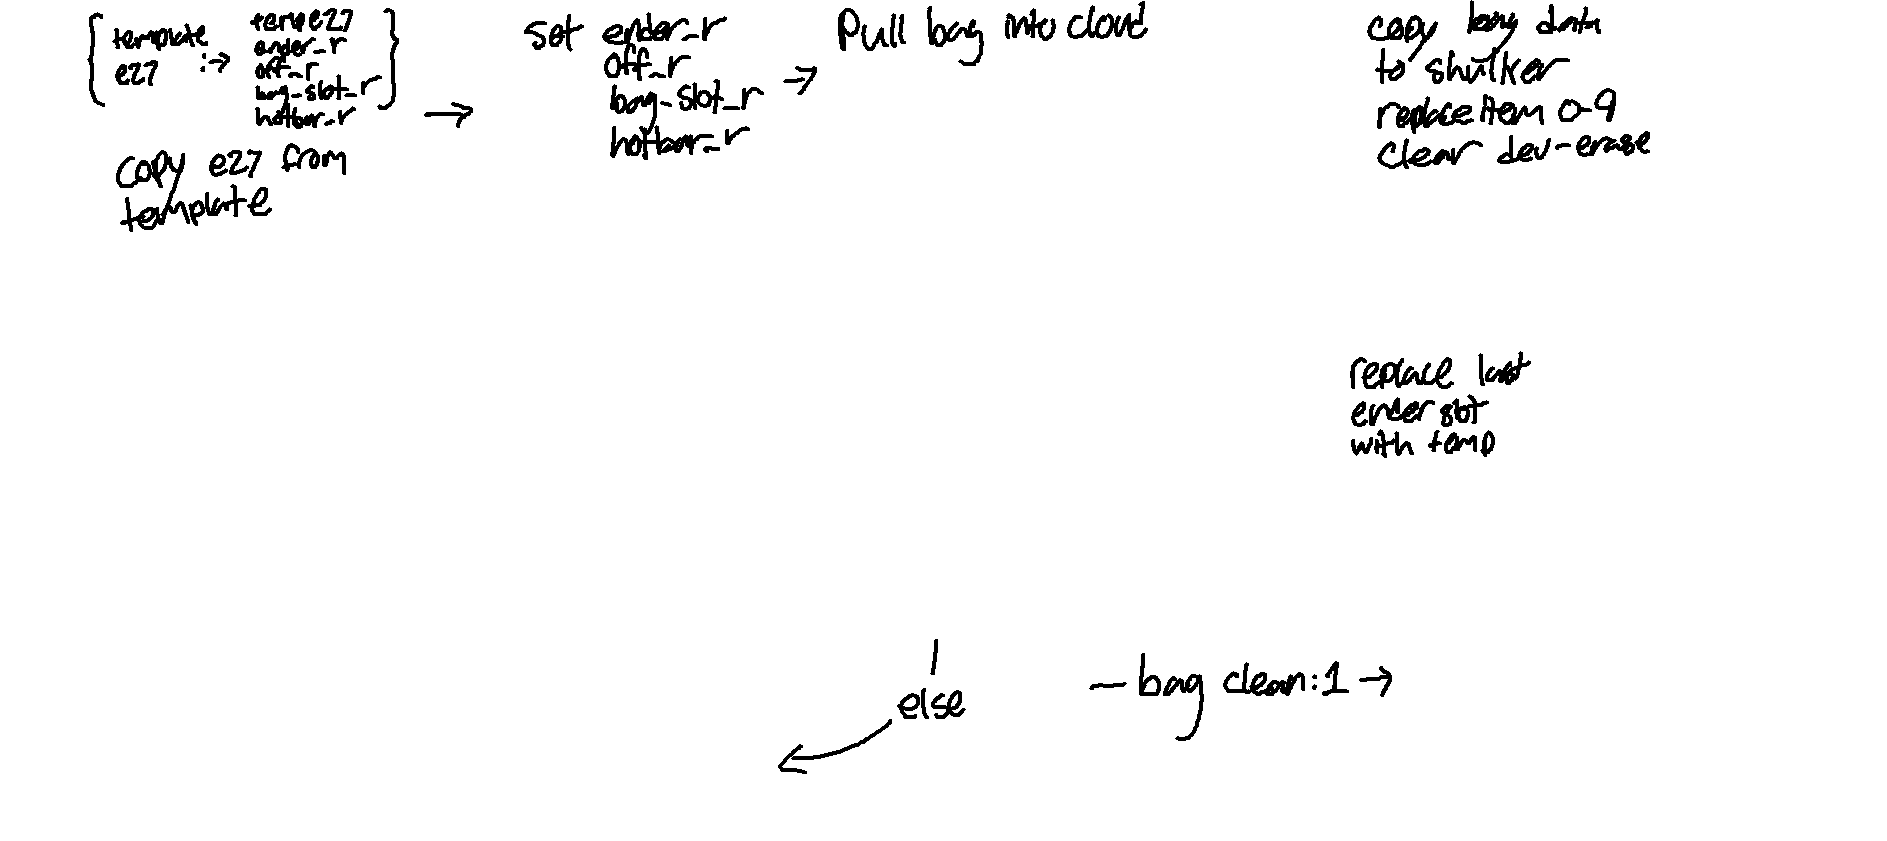 template
e27
:→
temp e27
ender_r
off_r
bag-slot_r
hotbar_r
copy e27 from
template
→
set ender_r
off_r
bag-slot_r
hotbar_r
→
Pull bag into cloud
copy bag data
to shulker
replace item 0-9
clear dev-erase
replace last
ender slot
with temp
else
— bag clean:1 →